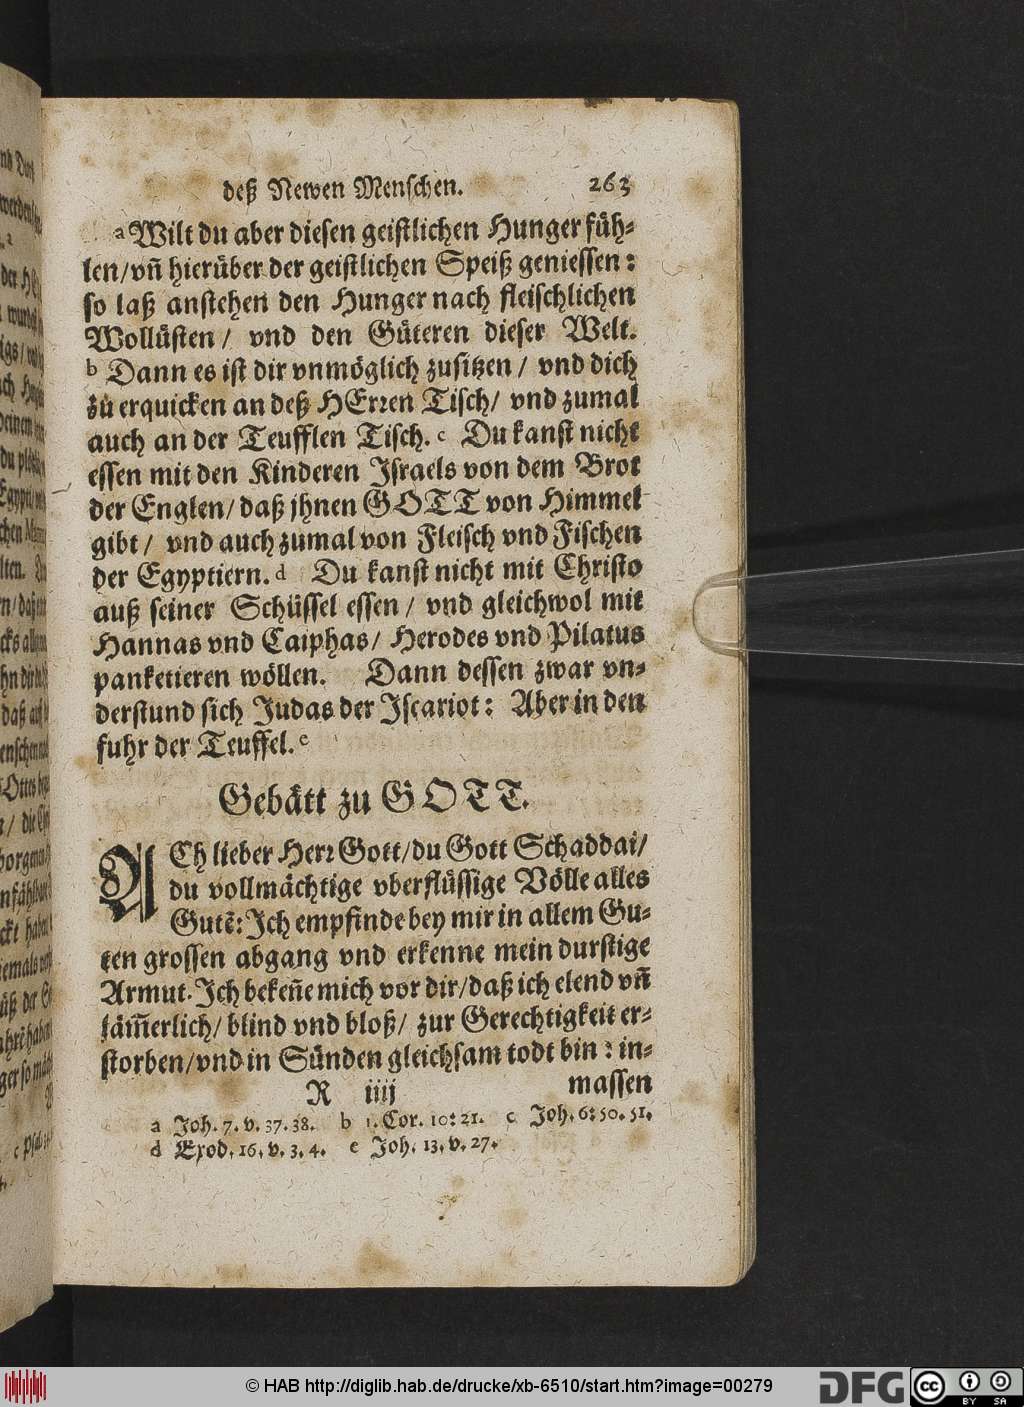 deß Newen Menschen. 263
a Wilt du aber diesen geistlichen Hunger füh⸗
len/vñ hierüber der geistlichen Speiß geniessen:
so laß anstehen den Hunger nach fleischlichen
Wollüsten/ vnd den Güteren dieser Welt.
b Dann es ist dir vnmöglich zusitzen/ vnd dich
zu erquicken an deß HErren Tisch/ vnd zumal
auch an der Teufflen Tisch. c Du kanst nicht
essen mit den Kinderen Israels von dem Brot
der Englen/ daß jhnen GOTT von Himmel
gibt/ vnd auch zumal von Fleisch vnd Fischen
der Egyptiern. d Du kanst nicht mit Christo
auß seiner Schüssel essen/ vnd gleichwol mit
Hannas vnd Caiphas/ Herodes vnd Pilatus
panketieren wöllen. Dann dessen zwar vn⸗
derstund sich Judas der Iscariot: Aber in den
fuhr der Teuffel. e
Gebätt zu GOTT.
ACh lieber Herr Gott/du Gott Schaddai/
du vollmächtige vberflüssige Völle alles
Gutẽ: Ich empfinde bey mir in allem Gu⸗
ten grossen abgang vnd erkenne mein durstige
Armut. Ich bekeñe mich vor dir/daß ich elend vñ
jäm̃erlich/ blind vnd bloß/ zur Gerechtigkeit er⸗
storben/vnd in Sünden gleichsam todt bin: in⸗
R iiij massen
a Joh. 7. v. 37. 38. b 1. Cor. 10: 21. c Joh. 6: 50. 51.
d Exod. 16. v. 3. 4. e Joh. 13. v. 27.
© HAB http://diglib.hab.de/drucke/xb-6510/start.htm?image=00279
DFG
cc BY SA